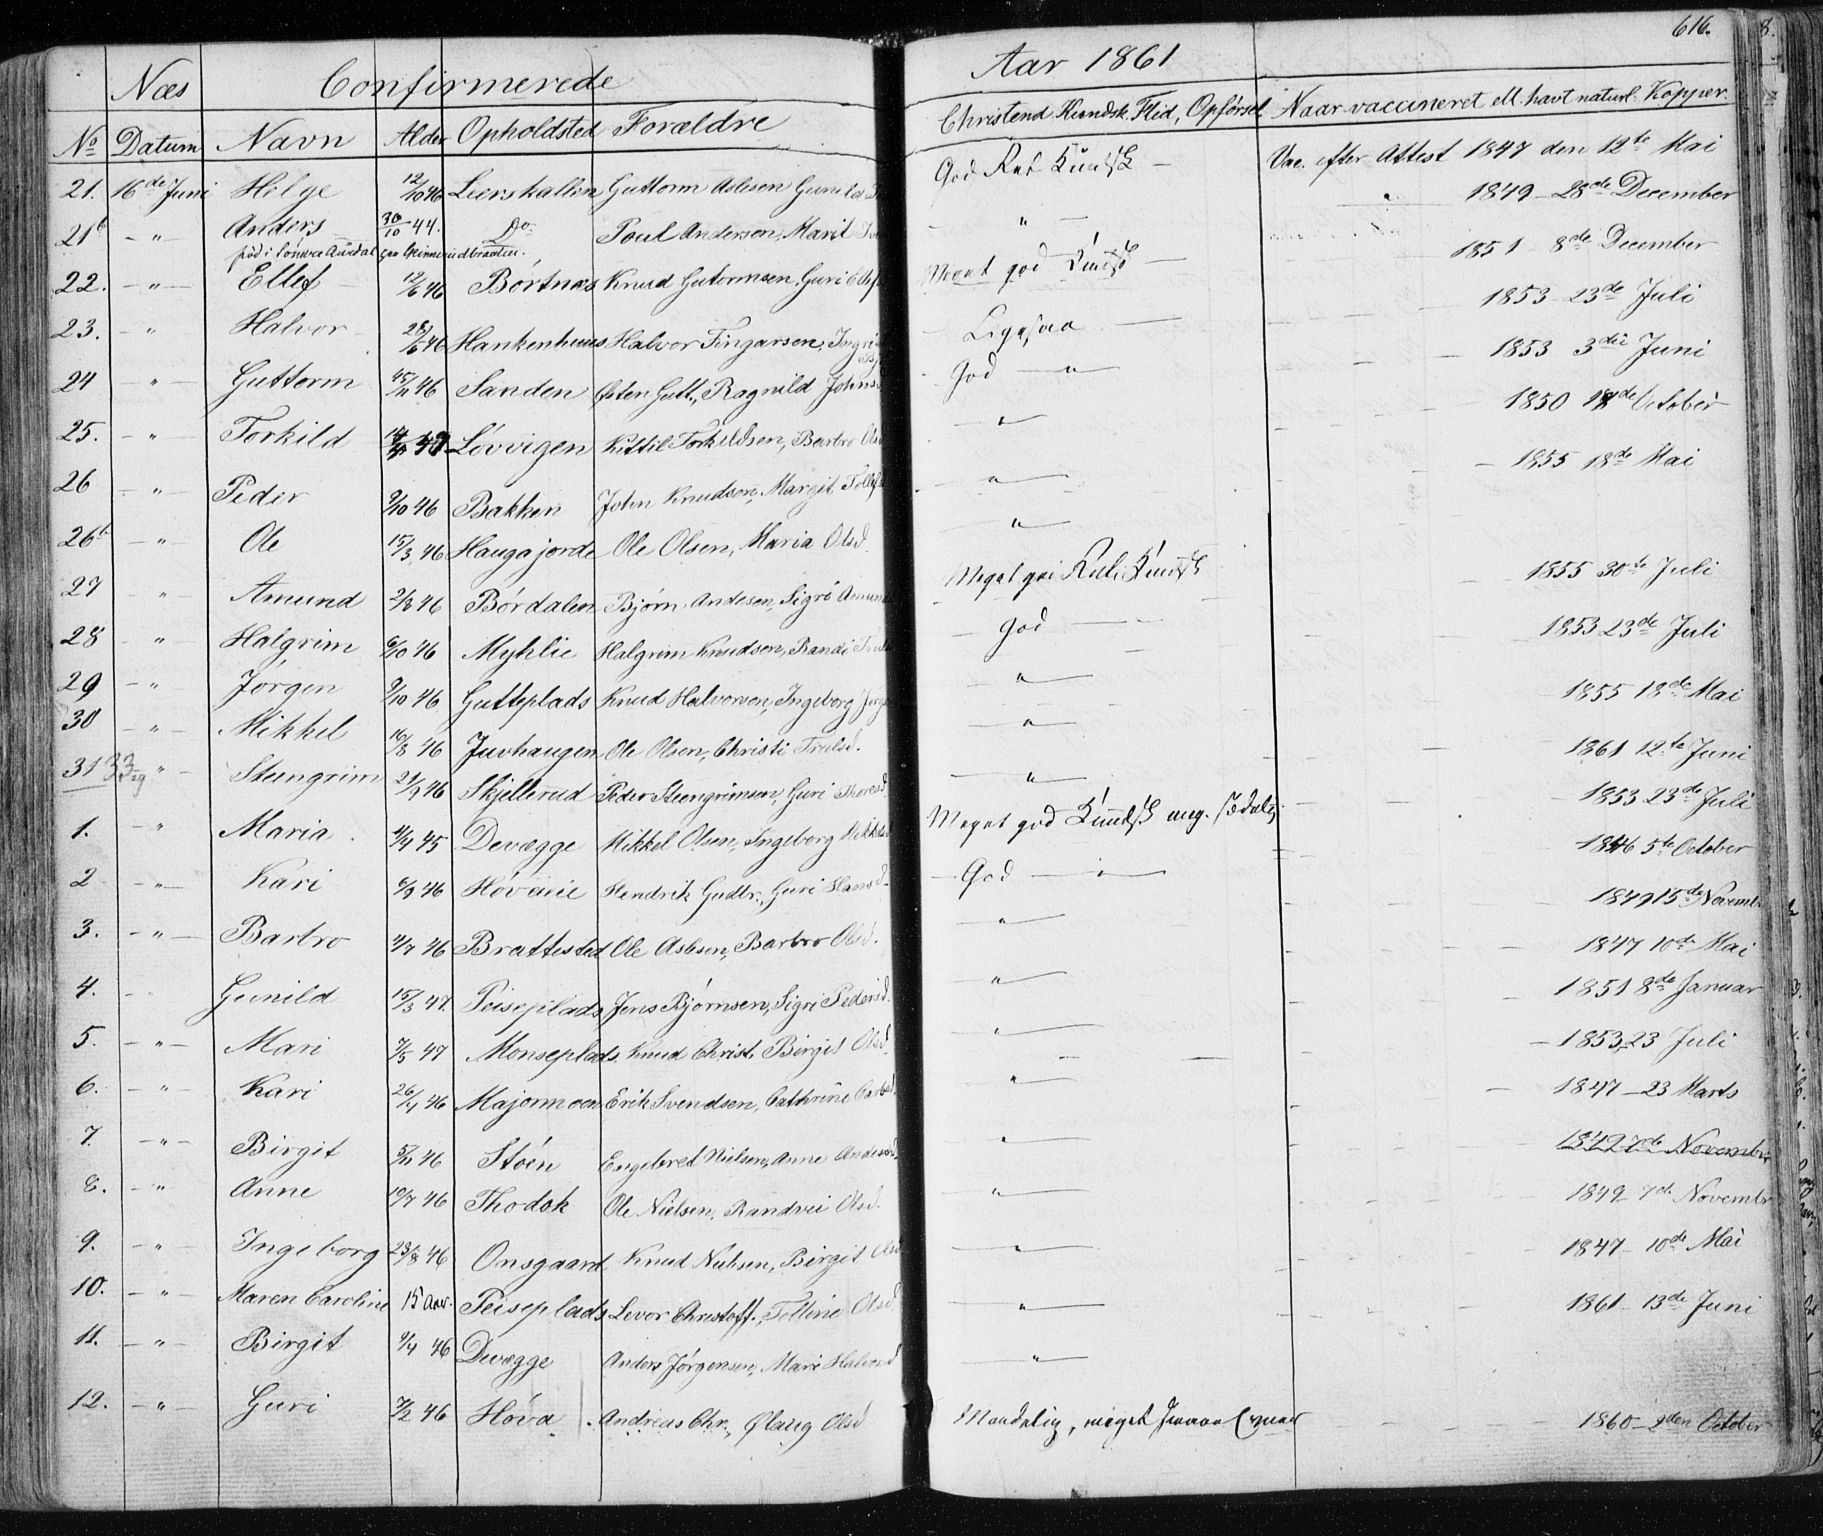 616.
Næs Confirmerede Aar 1861
No Datum Navn Alder Opholdsted Forældre Christend Kundsk. Flid, Opførsel Naar vaccineret ell. havt naturl. Kopper.
21. 16de Juni Helge 12/10 46 Leerskallen Guttorm Aslesen Gunild God Rel Kundsk — Vac. efter Attest 1847 den 12te Mai
21b - „ Anders 30/10 44. Do. Poul Andersen, Marit „ 1849 - 28de December
fød i Søndre Aurdal
22. - „ - Ellef 12/6 46 Børtnæs Knud Gutormsen, Guri Meget god Kundsk — 1851 8de December
23. - „ Halvor 28/6 46 Hankenhuus Halvor Fingarsen, Ingri Ligesaa — 1853 - 23de Juli
24 - „ - Guttorm 15/11 46 Sanden Østen Gutt., Ragnild Johns God — „ — 1853 3die Juni
25. - „ - Torkild 47 Løvvigen Kittil Torkildsen, Barbro Olsd „ 1850 18de October
26 - „ - Peder 9/10 46 Bakken John Knudson, Margit Tollefs „ 1855 18de Mai
26b - „ - Ole 15/3 46 Haugajorde Ole Olsen, Maria Olsd. „
27 „ Amund 2/3 46 Børdalen Bjørn Andesen, Sigri Amund Meget god Rel. Kundsk 1855 30te Juli
28 - „ Halgrim 6/10 46 Myhlie Halgrim Knudsen, Randi God — 1853 23de Juli
29 - „ - Jørgen 9/10 46. Gutteplads Knud Halvorsen, Ingeborg Jørg „ 1855 18de Mai
30 - „ - Mikkel 16/8 46 Juvhaugen Ole Olsen, Christi Trulsd. „ 1861 12te Juni
31 33 „ Steengrim 21/9 46 Skjellerud Peder Steengrimsen, Guri Thoresd. „ 1853 23de Juli
1. - „ Maria 4/9 45 Devægge Mikkel Olsen, Ingeborg Mikkelsd Meget god Kundsk 1846 5te October
2 - „ - Kari 6/9 46 Høvarie Hendrik Gudbr., Guri Hansd God — „ — 1849 15de Novemb
3. - „ - Barbro 4/7 46 Brattested Ole Aslesen, Barbro Olsd. „ 1847 10de Mai
4. Gunild 15/3 47. Peiseplads Jens Bjørnsen, Sigri Pedersd. „ 1851 8de Januar
5. - „ - Mari 7/5 47 Monseplads Knud Christ. Birgit Olsd. „ 1853 23 Juli
6. - „ - Kari 26/4 46 Majormoen Erik Svendsen, Cathrine „ 1847 - 23 Marts
7. - „ - Birgit 5/11 46 Støen Engebret Nielsen, Anne Andersd. „ 1849 7de November
8. - „ - Anne 10/7 46 Thodok Ole Nielsen, Randvei Olsd. „ 1849 7de Novembr
9. - „ - Ingeborg 23/8 46 Onsgaard Knud Nielsen, Birgit Olsd „ 1847 - 10de Mai
10. - „ - Maren Caroline 15 Aar. Peiseplads Levor Christoff., Tolline Olsd „ 1861 - 13de Juni
11. - „ - Birgit 9/4 46 Devægge Anders Jørgensen, Mari Halvorsd „
12. - „ - Guri 7/2 46 Hova Andreas Chr., Ølaug Olsd Maadelig, meget 1860 - 2den October